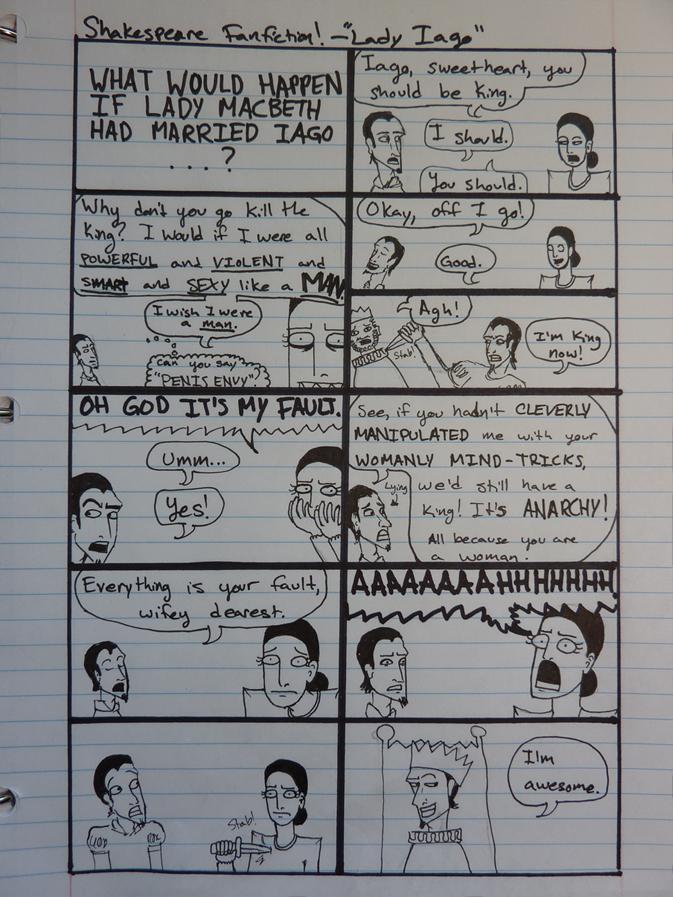 Shakespeare Fanfiction! - "Lady Iago"
WHAT WOULD HAPPEN
IF LADY MACBETH
HAD MARRIED IAGO
....?
Iago, sweetheart, you
should be King.
I should.
You should.
Why don't you go kill the
King? I would if I were all
POWERFUL and VIOLENT and
SMART and SEXY like a MAN.
I wish I were
a man.
can you say
"PENIS ENVY".
Okay, off I go!
Good.
Agh!
Stab!
I'm King
now!
OH GOD IT'S MY FAULT.
Umm...
Yes!
See, if you hadn't CLEVERLY
MANIPULATED me with your
WOMANLY MIND-TRICKS,
we'd still have a
King! It's ANARCHY!
All because you are
a woman.
Lying
Everything is your fault,
wifey dearest.
AAAAAAAAHHHHHHH
Stab!
I'm
awesome.